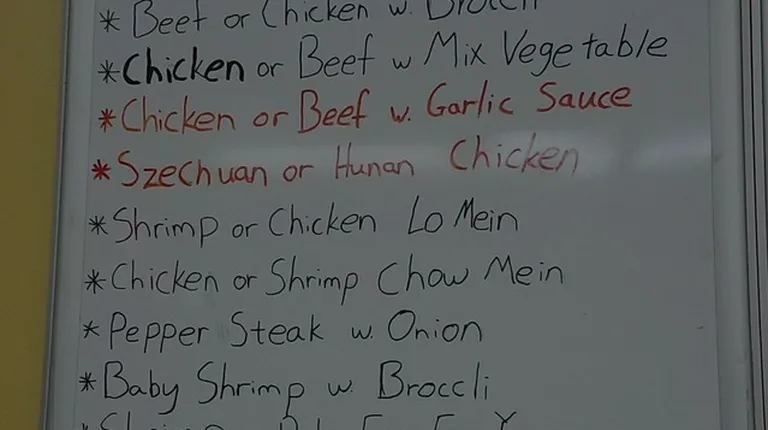 * Beef or Chicken w. Broccli
* Chicken or Beef w Mix Vegetable
* Chicken or Beef w. Garlic Sauce
* Szechuan or Hunan Chicken
* Shrimp or Chicken Lo Mein
* Chicken or Shrimp Chow Mein
* Pepper Steak w. Onion
* Baby Shrimp w. Broccli